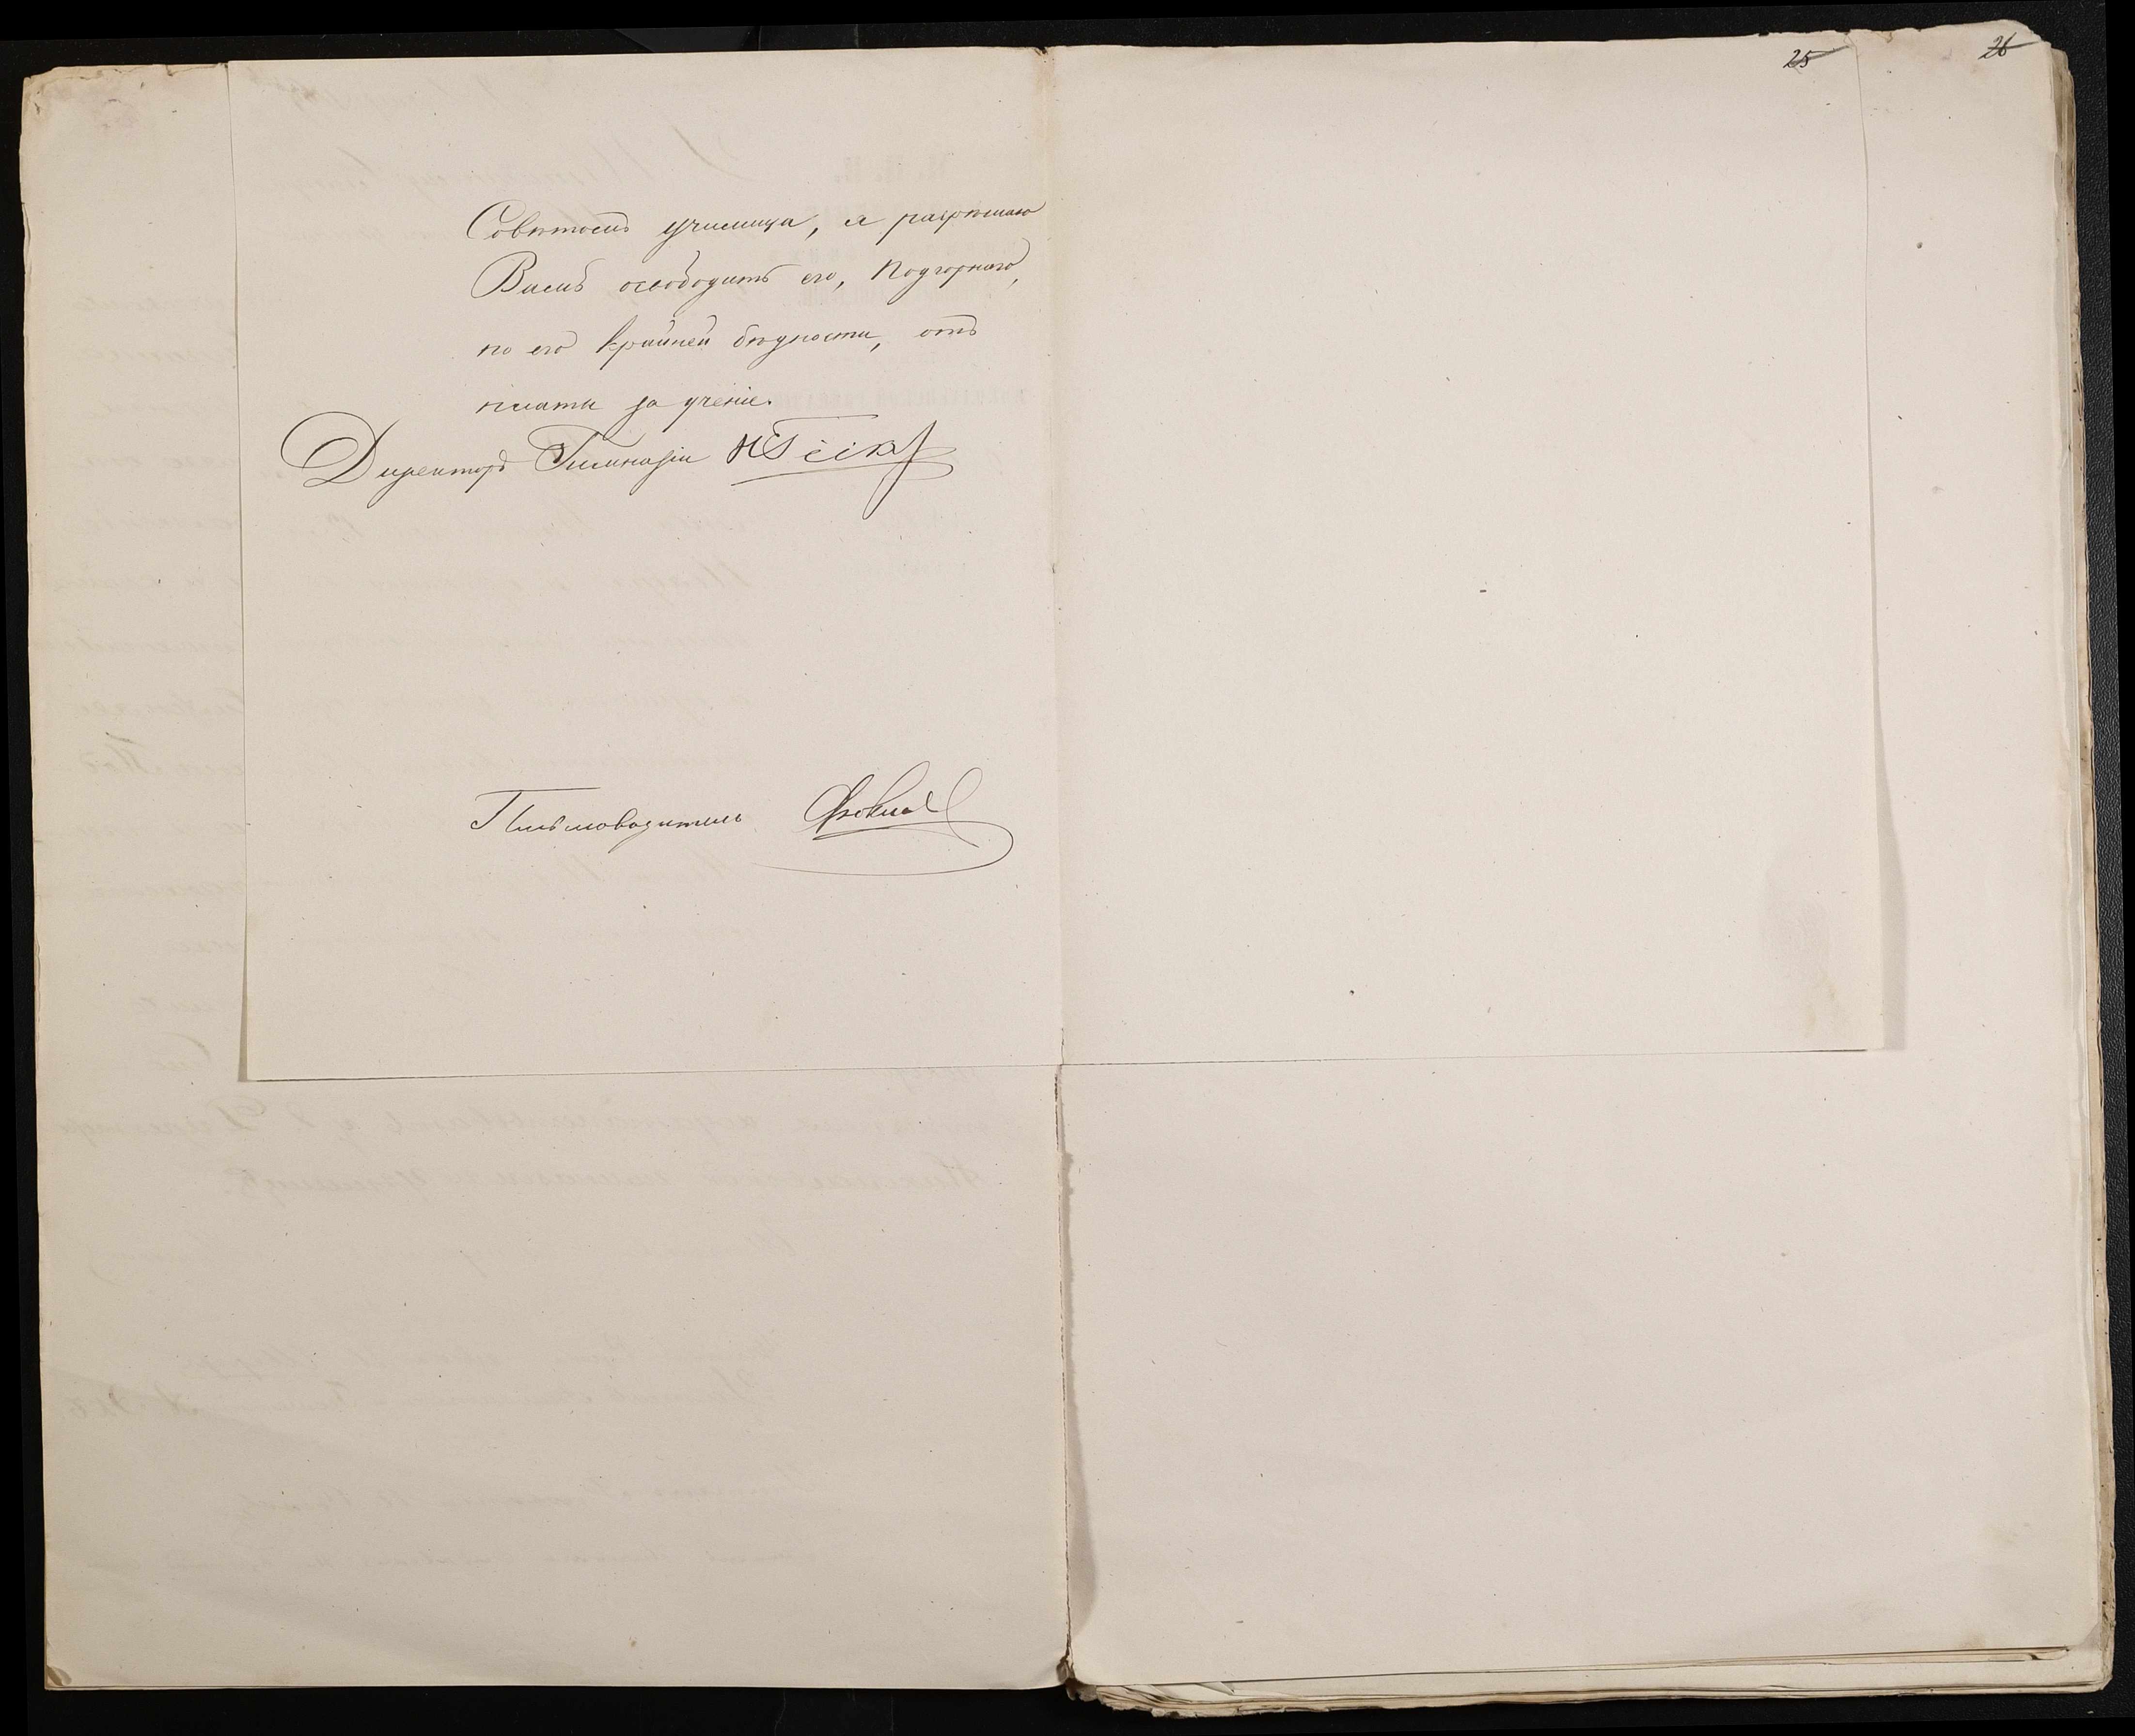 25
26
Совѣтомъ училища, я разрѣшаю
Вамъ освободить его, Подгорнаго,
по его крайней бѣдности, отъ
платы за ученіе.
Директоръ Гимназіи
Письмоводитель